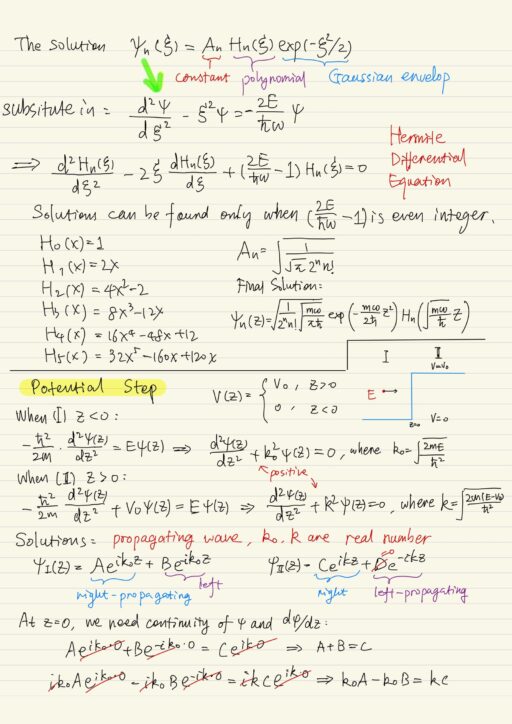 The solution ψn(ξ) = An Hn(ξ) exp(-ξ²/2)
constant polynomial Gaussian envelop
subsitute in: d²ψ/dξ² - ξ²ψ = -2E/ħω ψ
⇒ d²Hn(ξ)/dξ² - 2ξ dHn(ξ)/dξ + (2E/ħω - 1) Hn(ξ) = 0
Hermite Differential Equation
Solutions can be found only when (2E/ħω - 1) is even integer.
H₀(x) = 1
H₁(x) = 2x
H₂(x) = 4x² - 2
H₃(x) = 8x³ - 12x
H₄(x) = 16x⁴ - 48x + 12
H₅(x) = 32x⁵ - 160x + 120x
An = √(1/(√π 2ⁿ n!))
Final Solution:
ψn(z) = √(1/(2ⁿn!) √(mω/πħ)) exp(-mω/2ħ z²) Hn(√(mω/ħ) z)
Potential Step
V(z) = { V₀, z>0
0, z<0
I II
V=V₀
E
z=0 V=0
When (I) z<0:
-ħ²/2m · d²ψ(z)/dz² = Eψ(z) ⇒ d²ψ(z)/dz² + k₀²ψ(z) = 0, where k₀ = √(2mE/ħ²)
positive
When (II) z>0:
-ħ²/2m d²ψ(z)/dz² + V₀ψ(z) = Eψ(z) ⇒ d²ψ(z)/dz² + k²ψ(z) = 0, where k = √(2m(E-V₀)/ħ²)
Solutions: propagating wave, k₀, k are real number
ψI(z) = Ae^ik₀z + Be^-ik₀z ψII(z) = Ce^ikz + De^-ikz
=0
right-propagating left right left-propagating
At z=0, we need continuity of ψ and dψ/dz:
Ae^ik₀·0 + Be^-ik₀·0 = Ce^ik·0 ⇒ A+B=C
ik₀Ae^ik₀·0 - ik₀Be^-ik₀·0 = ikCe^ik·0 ⇒ k₀A - k₀B = kC